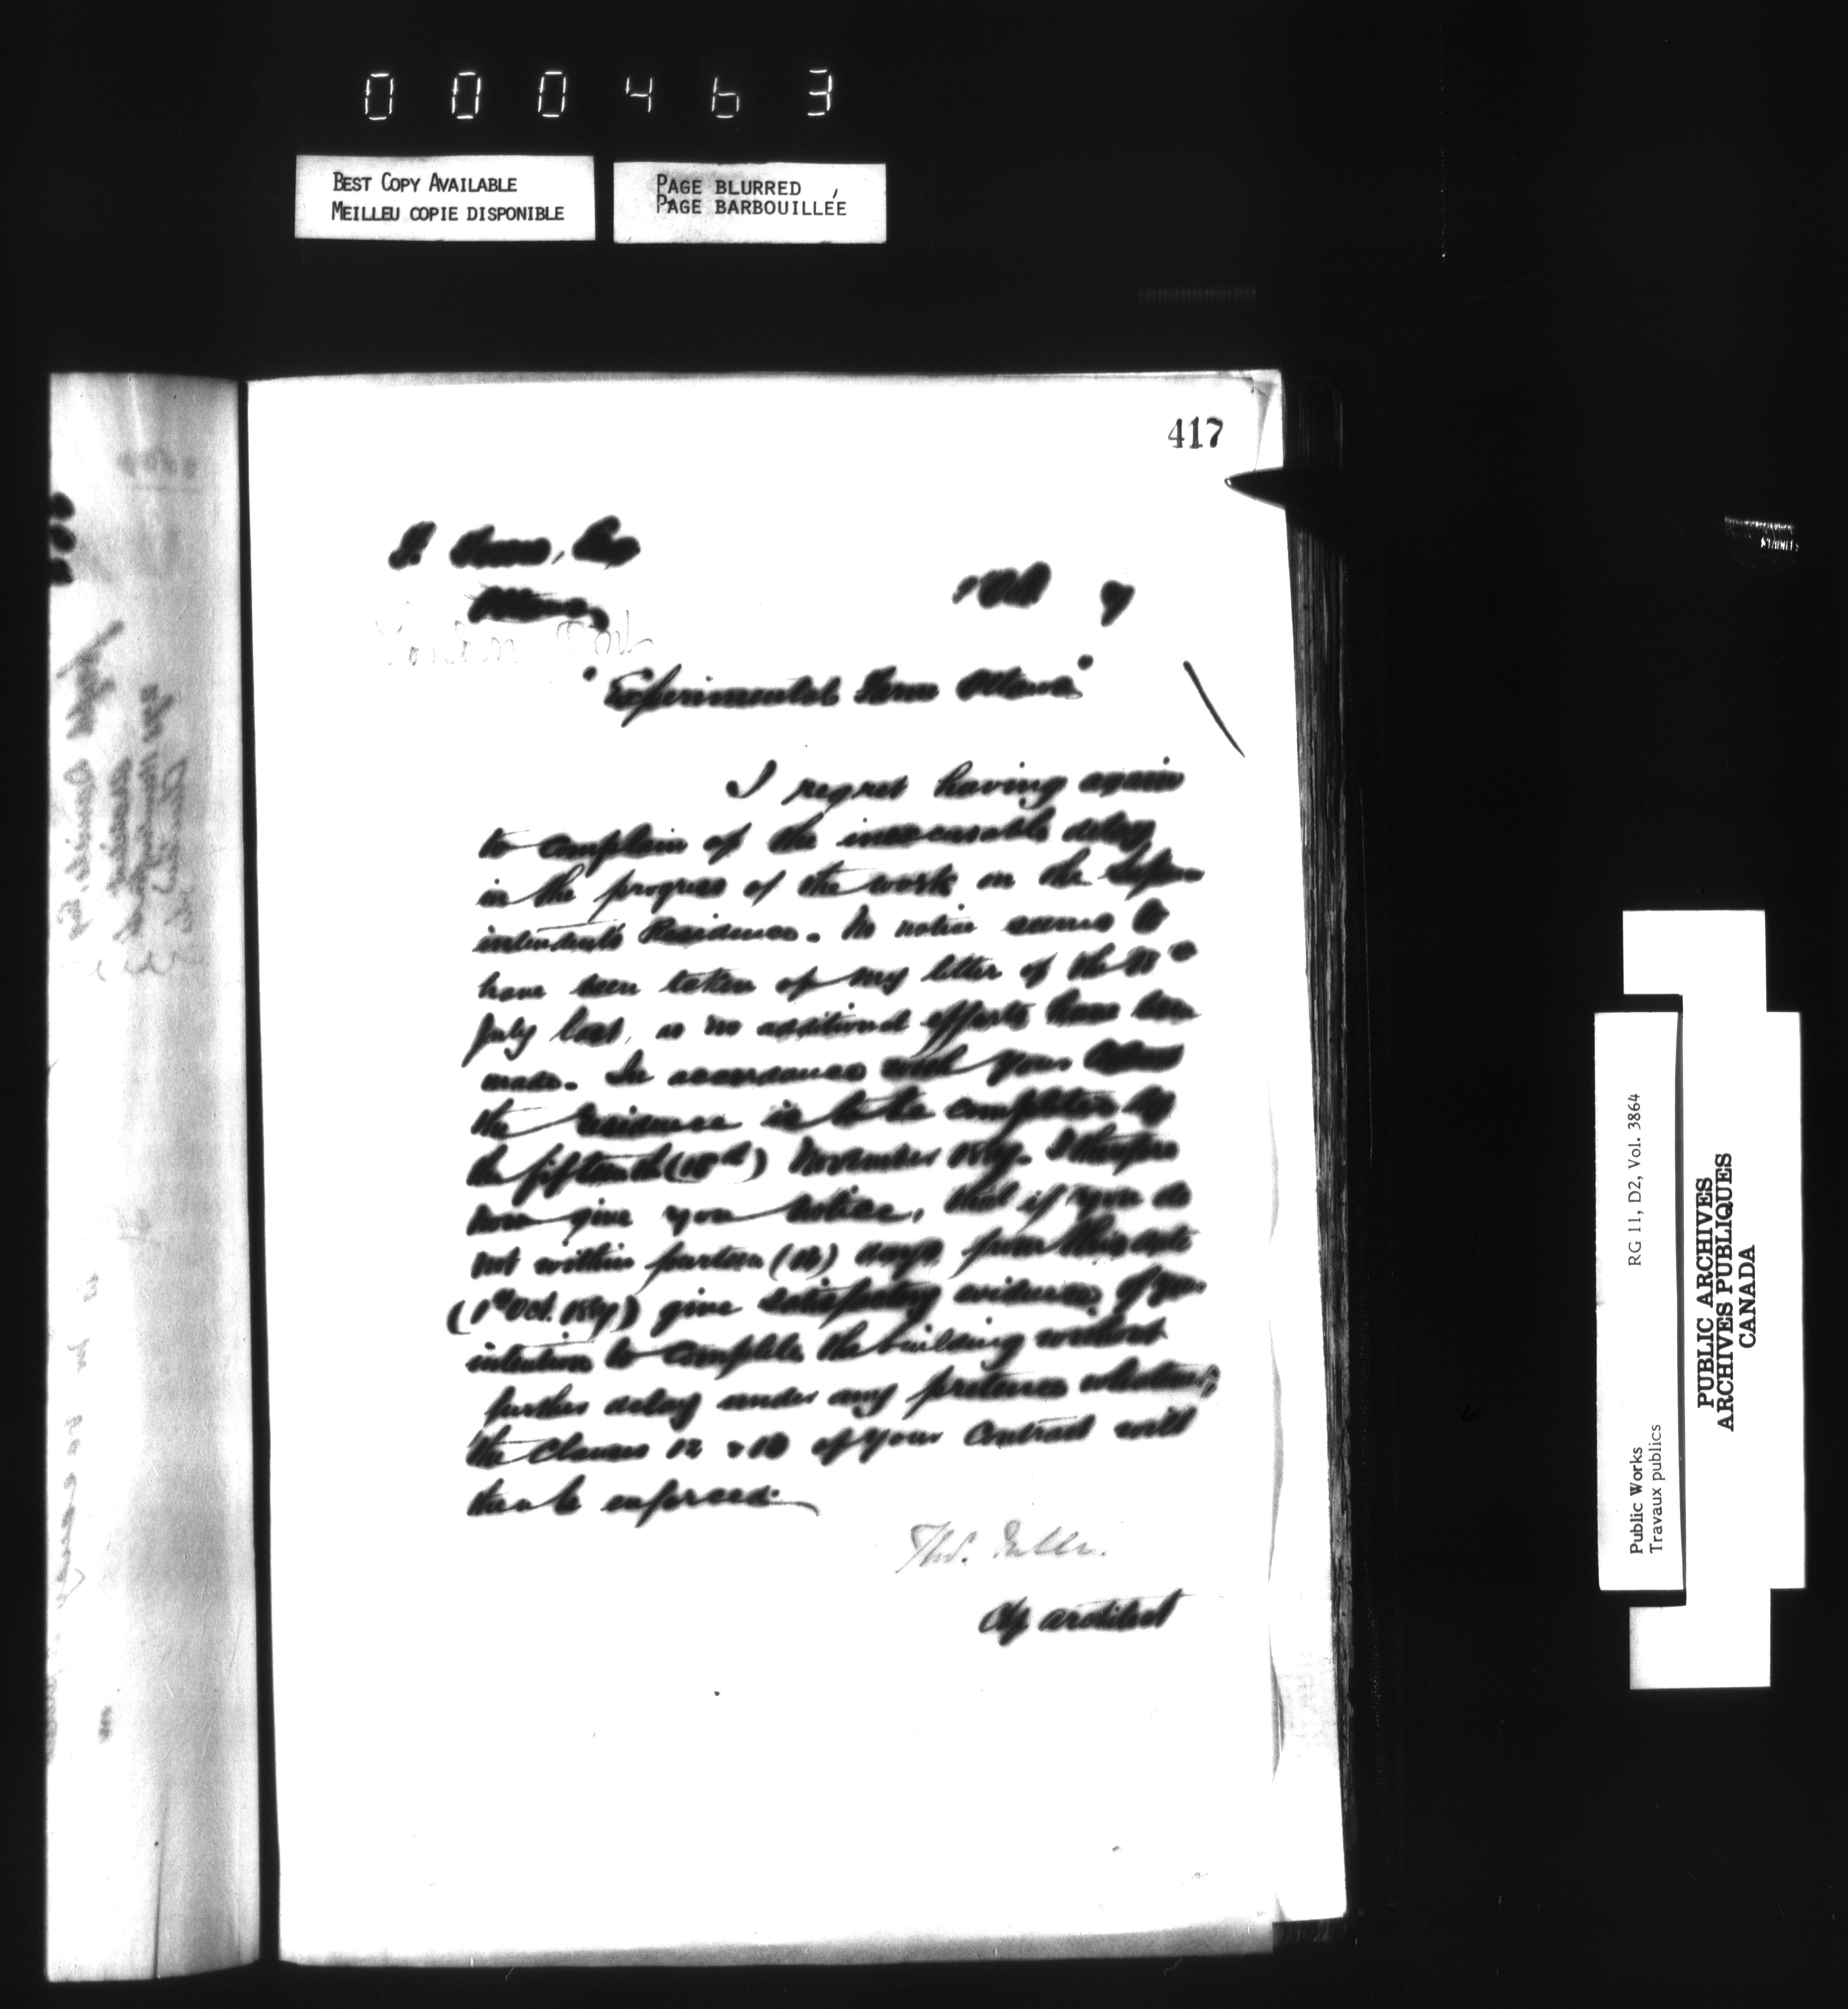 000463
BEST COPY AVAILABLE
MEILLEU COPIE DISPONIBLE
PAGE BLURRED
PAGE BARBOUILLÉE
417
Esq
Ottawa
1 Oct 9
"Experimental Farm Ottawa"
I regret having again
to complain of the inexcusable delay
in the progress of the work on the Super
intendent's Residence. No notice seems to
have been taken of my letter of the
July last, as no additional efforts have been
made. In accordance with your
the residence is to be completed by
the fifteenth (15th) November 1889. I therefore
now give you notice, that if you do
not within fourteen (14) days from this date
(1st Oct. 1889) give satisfactory evidence of your
intention to complete the building without
further delay under any pretence whatever,
the Clauses 12 & of your Contract will
then be enforced.
Thos. Fuller.
Chf architect
Public Works
Travaux publics
RG 11, D2, Vol. 3864
PUBLIC ARCHIVES
ARCHIVES PUBLIQUES
CANADA